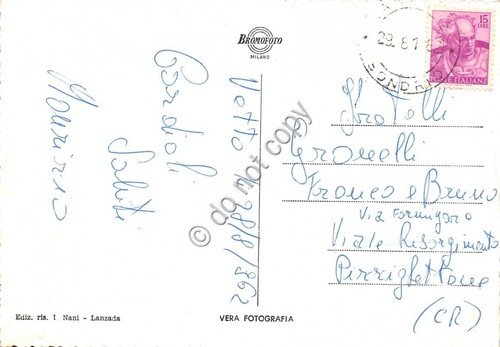 BROMOFOTO
MILANO
15
LIRE
POSTE ITALIANE
29.8.1
SONDR
28/8/962
Cordiali
Saluti
Maurizio
Fratelli
Gronelli
Franco e Bruno
Via Formigara
Viale Risorgimento
Pizzighettone
(CR)
do not copy
Ediz. ris. I Nani - Lanzada
VERA FOTOGRAFIA